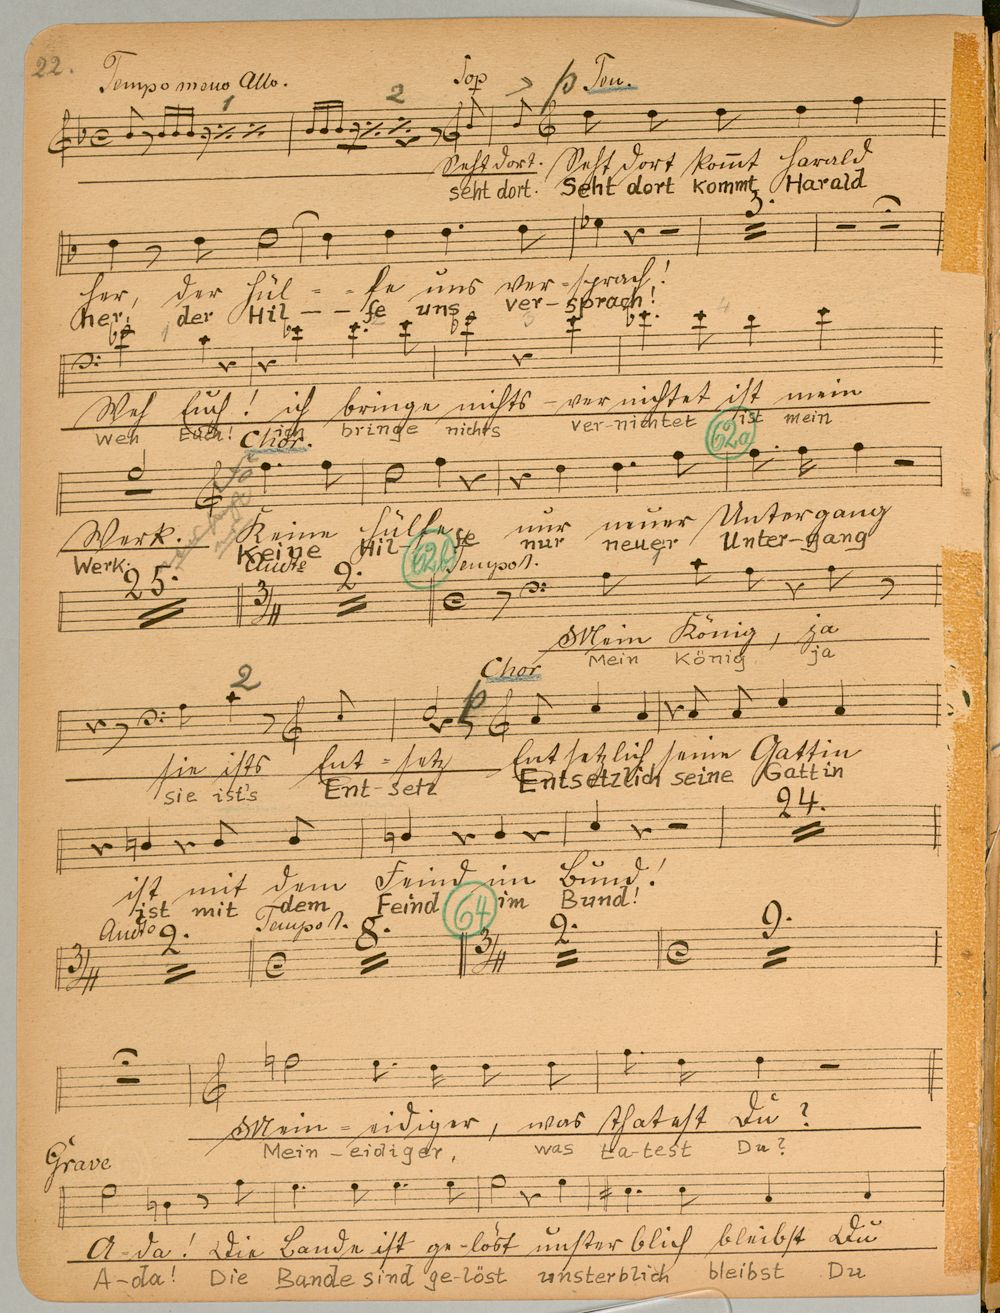 22.
Tempo meno Allo.
1
2
Sop
p
Ten.
Seht dort. Seht dort kommt Harald
seht dort. Seht dort kommt Harald
3.
her, der Hül - - fe uns ver-sprach!
her, der Hil - - fe uns ver-sprach!
1
3
4
Weh Euch! ich bringe nichts - vernichtet ist mein
Weh Euch! ich bringe nichts ver-nichtet ist mein
Chor.
62a
Werk. Keine Hülfe nur neuer Untergang
Werk. Keine Hil-fe nur neuer Unter-gang
25.
Andte
3/4
2.
62b
Tempo 1.
1
Mein König, ja
Mein König ja
2
Chor
p
sie ists Ent-setz Entsetzlich seine Gattin
sie ist's Ent-setz Entsetzlich seine Gattin
24.
ist mit dem Feind im Bund!
ist mit dem Feind im Bund!
Andte
Tempo 1.
64
3/4
2.
8.
3/4
2.
9.
Mein-eidiger, was thatest Du?
Mein-eidiger, was ta-test Du?
Grave
A-da! Die Bande ist ge-löst unsterblich bleibst Du
A-da! Die Bande sind ge-löst unsterblich bleibst Du